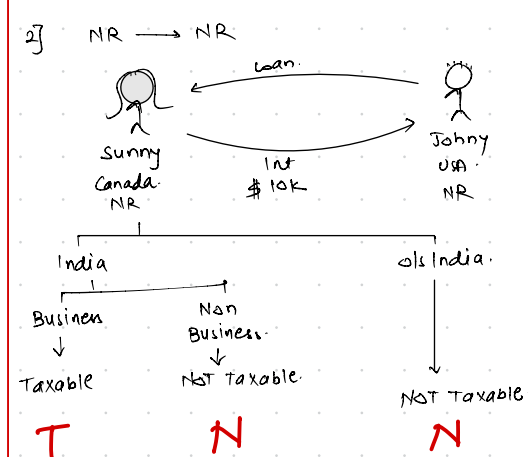 2] NR → NR
Loan.
Sunny
Canada.
NR
Int
$ 10K
Johny
USA.
NR
India
o/s India.
Business
Non
Business.
Taxable
NOT Taxable.
NOT Taxable
T
N
N